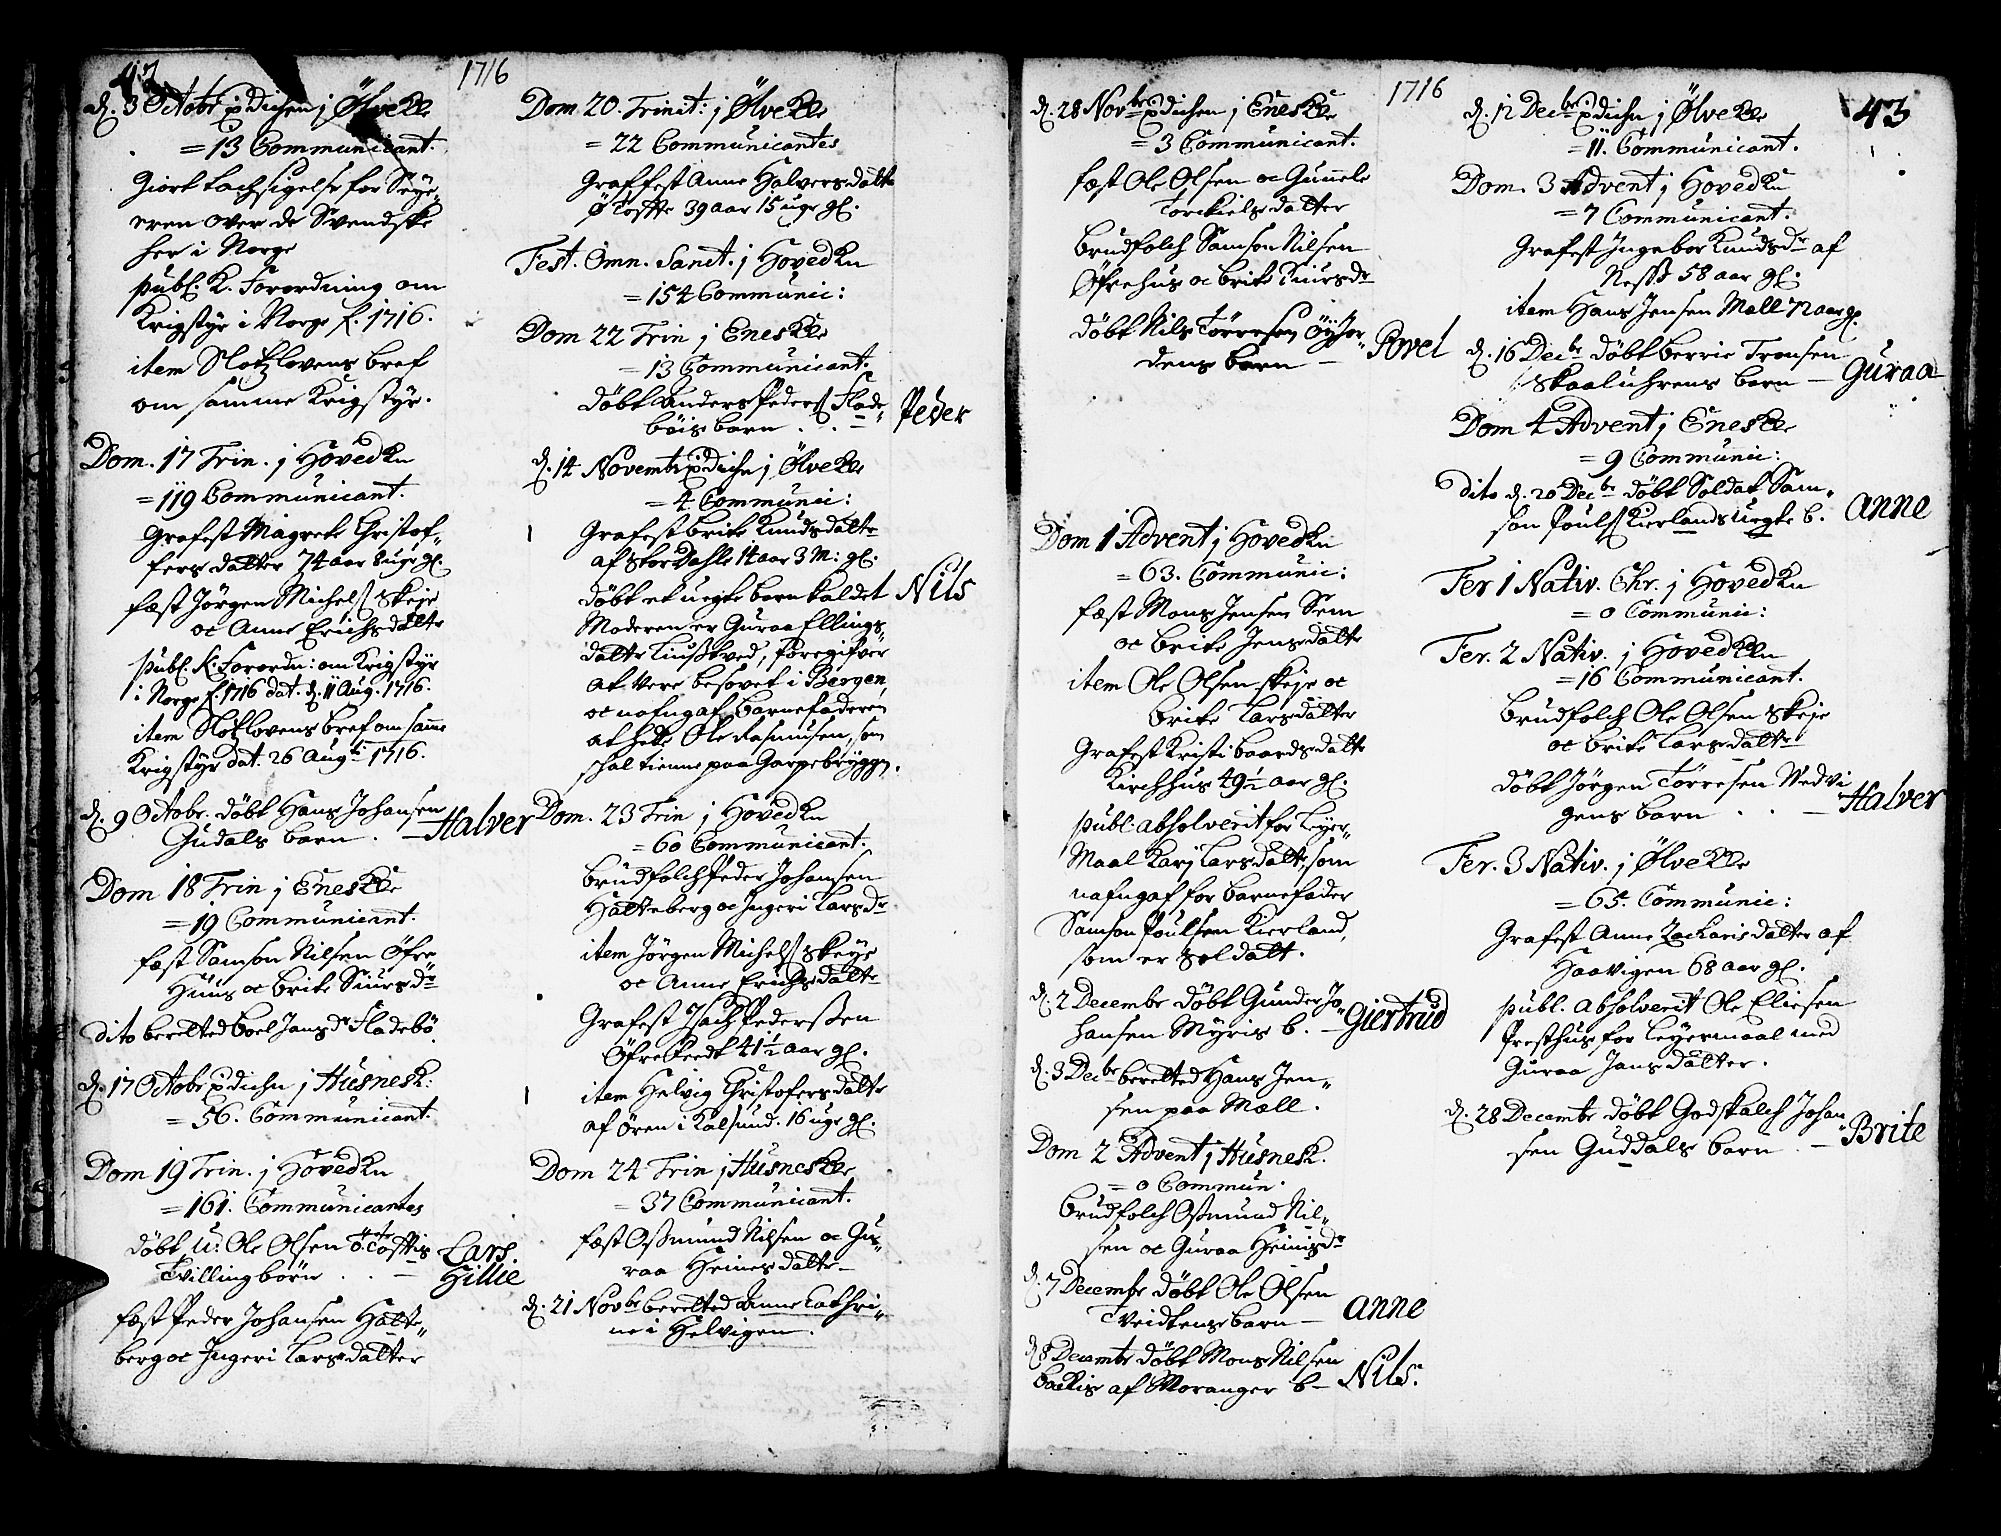 42
1716
d. 3 Octobr prædichen j Ølve K.
= 13 Communicant.
Giort tachsigelse for Seÿe„
eren over de Svendske
her i Norge
publ. K. Forordning om
Krigstÿr i Norge f. 1716.
item Slotzlovens bref
om samme Krigstÿr.
Dom. 17 Trin. j Hovedkn
= 119 Communicant.
Grafest Magrete Christof„
fers datter 74 aar 8 uger gl.
fæst Jørgen Michels. Skeje
oc Anne Erichsdatter
publ. K. Forordn: om Krigstÿr
i Norge f. 1716 dat. d. 11 Aug. 1716.
item Slotzlovens bref om samme
Krigstÿr dat. 26 Augti 1716.
d. 9 Octobr. døbt Hans Johansen
Gudals barn . — Halver
Dom 18 Trin j Enes K.
= 19 Communicant.
fæst Samson Nilsen Øfre
Huus oc Brite Siursdr
dito beretted Boel Jansdr Fladebø.
d. 17 Octobr prædichn j Husnesk:
= 56. Communicant.
Dom 19 Trin. j Hovedkn
= 161. Communicantes
døbt u: Ole Olsen Ø Tofttis Lars.
Tvillingbørn . . — Gillie
fæst Peder Johansen Halte„
berg oc Ingeri Larsdatter
Dom 20. Trinit: j Ølve K.
= 22 Communicantes
Graffest Anne Halversdatter
Ø Toftte 39 aar 15 uger gl.
Fest. Omn. Sanct. j Hovedkn
= 154 Communic:
Dom 22 Trin j Enes K.
= 13 Communicant.
døbt Anders Peders. Flade„
bøis barn . . — Peder
d. 14 Novembr prædichn j Ølve K.
= 4 Communic:
Grafest Brite Knudsdatter
af Skor Dahle 14 aar 3 M: gl.
døbt et uegte barn kaldet Nils
Moderen er Guraa Ellings„
datter Liusskved, foregifver
at vere besovet i Bergen,
oc nafngaf Barnefaderen
at hede Ole Rasmusen, som
schal tienne paa Garpebryggen.
Dom. 23 Trin j Hovedkn
= 60 Communicant.
Brudfolch Peder Johansen
Halteberg oc Ingeri Larsdr
item Jørgen Michels. Skeÿe
oc Anne Erichsdatter
Grafest Isach Pederssen
Øfre Feedt 41½ aar gl.
item Helvig Christofersdatter
af Øren i Kalsund. 16 uger gl.
Dom 24 Trin j Husnes K.
= 37 Communicant.
fæst Ossmund Nilsen oc Gu„
raa Heinesdatter
d. 21 Novbr beretted Anne Cathri„
ne i Helvigen.
1716
d. 28 Novbr prædichen j Enes K.
= 3 Communicant.
fæst Ole Olsen oc Gunele
Torckielsdatter
Brudfolch Samson Nilsen
Øfrehus oc Brite Siursdr
døbt Nils Torresen Øÿjor„
dens barn — Povel
Dom 1 Advent j Hovedkn
= 63. Communic:
fæst Mons Jensen Sem
oc Brite Jensdatter
item Ole Olsen Skeje oc
Brite Larsdatter
Grafest Kristi Baardsdatter
Kirchhus 49½ aar gl.
publ: absolverit for Leÿer„
Maal Karj Larsdatter, som
nafngaf for barnefader
Samson Poulsen Kierland,
som er Soldatt.
d. 2 Decembr døbt Gunder Jo„
hansen Mÿris b. — Giertrud
d. 3 Decbr beretted Hans Jen„
sen paa Mæll.
Dom 2 Advent j Husnesk.
= 0 Commun.
Brudfolch Ossmund Nil„
sen oc Guraa Heinisdr
d. 7 Decembr døbt Ole Olsen
Tveidtens barn — Anne
d. 8 Decembr døbt Mons Nilsen
Backis af Moranger b — Nils.
43
d. 12 Decbr prædichn j Ølve K.
= 11. Communicant.
Dom. 3 Advent j Hovedkn
= 7 Communicant.
Grafest Ingebor Knudsdr af
Ness 58 aar gl.
item Hans Jensen Mæll 72 aar gl.
d. 16 Decbr døbt Berrie Tronsen
Skaaluhrens barn — Guraa
Dom 4 Advent j Enes K.
= 9 Communic:
dito d. 20 Decbr døbt Soldat Sam„
son Pouls. Kierlands uegte b. Anne
Fer 1 Nativ. Chr. j Hovedkn
= 0 Communic:
Fer. 2 Nativ. j Hovedkn
= 16 Communicant.
Brudfolch Ole Olsen Skeje
oc Brite Larsdatter
døbt Jørgen Torresen Nedvi
gens barn . . — Halver
Fer. 3 Nativ. j Ølve K.
= 65. Communic:
Grafest Anne Zackarisdatter af
Haavigen 68 aar gl.
publ. absolverit Ole Eliesen
Presthus for Leÿermaal med
Guraa Jansdatter.
d. 28 Decembr døbt Godskalch Johan
sen Guddals barn . — Brite